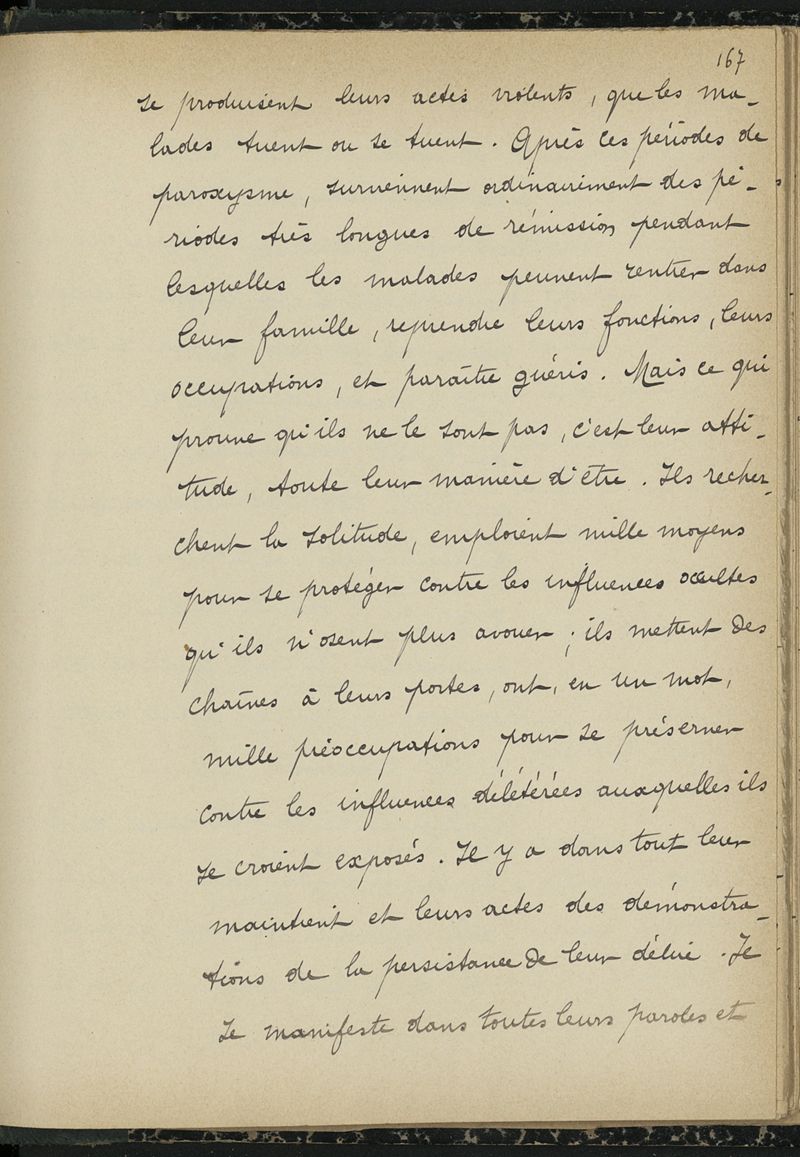 167
se produisent leurs actes violents, que les ma-
lades tuent ou se tuent. Après ces périodes de
paroxysme, surviennent ordinairement des pé-
riodes très longues de rémission pendant
lesquelles les malades peuvent rentrer dans
leur famille, reprendre leurs fonctions, leurs
occupations, et paraître guéris. Mais ce qui
prouve qu'ils ne le sont pas, c'est leur atti-
tude, toute leur manière d'être. Ils recher-
chent la solitude, emploient mille moyens
pour se protéger contre les influences occultes
qu'ils n'osent plus avouer; ils mettent des
chaînes à leurs portes, ont, en un mot,
mille préoccupations pour se préserver
contre les influences délétérées auxquelles ils
se croient exposés. Il y a dans tout leur
maintient et leurs actes des démonstra-
tions de la persistance de leur délire. Il
se manifeste dans toutes leurs paroles et